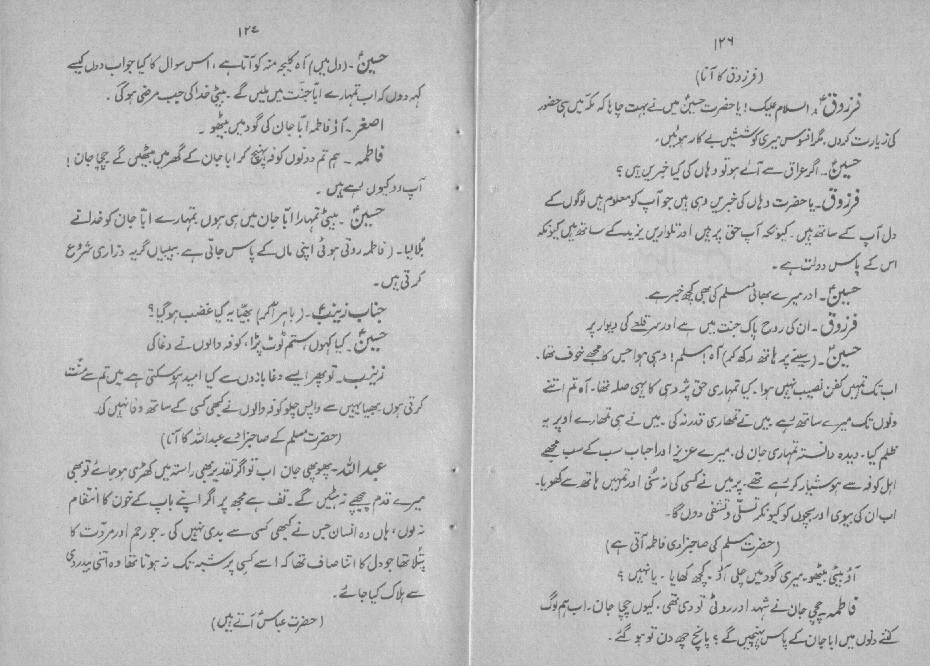 ۱۲۶
(فرزوق کا آنا)
فرزوقؑ۔ السلام علیک! یا حضرت حسینؑ میں نے بہت چاہا کہ مکہ میں ہی حضور
کی زیارت کروں۔ مگر افسوس میری کوششیں بے کار ہوئیں۔
حسینؑ۔ اگر عراق سے آئے ہو تو وہاں کی کیا خبریں ہیں؟
فرزوق۔ یا حضرت وہاں کی خبریں وہی ہیں جو آپ کو معلوم ہیں لوگوں کے
دل آپ کے ساتھ ہیں۔ کیونکہ آپ حق پر ہیں اور تلواریں یزید کے ساتھ ہیں کیونکہ
اس کے پاس دولت ہے۔
حسینؑ۔ اور میرے بھائی مسلم کی بھی کچھ خبر ہے۔
فرزوق۔ ان کی روح پاک جنت میں ہے اور سر قلعے کی دیوار پر
حسینؑ۔ (سینے پر ہاتھ رکھ کر) آہ مسلم! وہی ہوا جس کا مجھے خوف تھا۔
اب تک تمہیں کفن نصیب نہیں ہوا۔ کیا تمہاری حق پژدہی کا یہی صلہ تھا۔ آہ تم اتنے
دنوں تک میرے ساتھ رہے میں نے تمھاری قدر نہ کی۔ میں نے ہی تمھارے اوپر یہ
ظلم کیا۔ دیدہ دانستہ تمہاری جان لی۔ میرے عزیز اور احباب سب کے سب مجھے
اہل کوفہ سے ہوشیار کر رہے تھے۔ پر میں نے کسی کی نہ سنی اور تمہیں ہاتھ سے کھویا۔
اب ان کی بیوی اور بچوں کو کیونکر تسلّی و تشفی دوں گا۔
(حضرت مسلم کی صاحبزادی فاطمہ آتی ہے)
آؤ بیٹی بیٹھو۔ میری گود میں چلی آؤ۔ کچھ کھایا۔ یا نہیں؟
فاطمہ۔ چچی جان نے شہد اور روٹی تو دی تھی۔ کیوں چچا جان۔ اب ہم لوگ
کتنے دنوں میں ابا جان کے پاس پہنچیں گے؟ پانچ چھ دن تو ہو گئے۔
۱۲۷
حسینؑ۔ (دل میں) آہ کلیجہ منہ کو آتا ہے، اس سوال کا کیا جواب دوں کیسے
کہہ دوں کہ اب تمہارے ابّا جنت میں ملیں گے۔ بیٹی خدا کی جیب مرضی ہوگی۔
اصغر۔ آؤ فاطمہ ابّا جان کی گود میں بیٹھو۔
فاطمہ۔ ہم تم دونوں کوفہ پہنچ کر ابا جان کے گھر میں بیٹھیں گے چچا جان!
آپ رو کیوں رہے ہیں۔
حسینؑ۔ بیٹی تمہارا ابّا جان میں ہی ہوں، تمہارے ابّا جان کو خدا نے
بُلا لیا۔ (فاطمہ روتی ہوئی اپنی ماں کے پاس جاتی ہے بیبیاں گریہ و زاری شروع
کرتی ہیں۔
جناب زینبؑ۔ (باہر آکر) بھیّا یہ کیا غضب ہو گیا؟
حسینؑ۔ کیا کہوں ستم ٹوٹ پڑا، کوفہ والوں نے دغا کی
زینب۔ تو پھر ایسے دغا بازوں سے کیا امید ہو سکتی ہے میں تم سے منّت
کرتی ہوں بھیّا یہیں سے واپس چلو کوفہ والوں نے کبھی کسی کے ساتھ وفا نہیں کی۔
(حضرت مسلم کے صاحبزادے عبداللہ کا آنا)
عبداللہ۔ پھوپھی جان اب تو اگر تقدیر بھی راستہ میں کھڑی ہو جائے تو بھی
میرے قدم پیچھے نہ ہٹیں گے۔ تف ہے مجھ پر اگر اپنے باپ کے خون کا انتقام
نہ لوں، ہاں وہ انسان جس نے کبھی کسی سے بدی نہیں کی۔ جو رحم اور مروّت کا
پتلا تھا جو دل کا اتنا صاف تھا کہ اسے کسی پر شبہ تک نہ ہوتا تھا وہ اتنی بیدردی
سے ہلاک کیا جائے۔
(حضرت عباسؑ آتے ہیں)